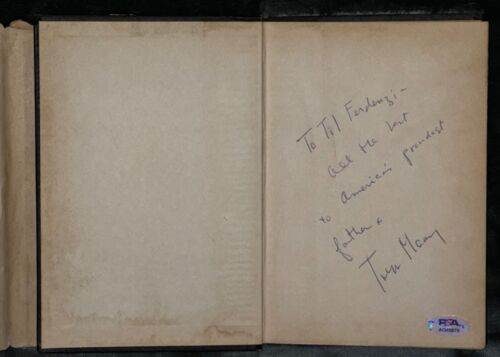 To Til Ferdenzi –
all the best
to America's proudest
father.
PSA